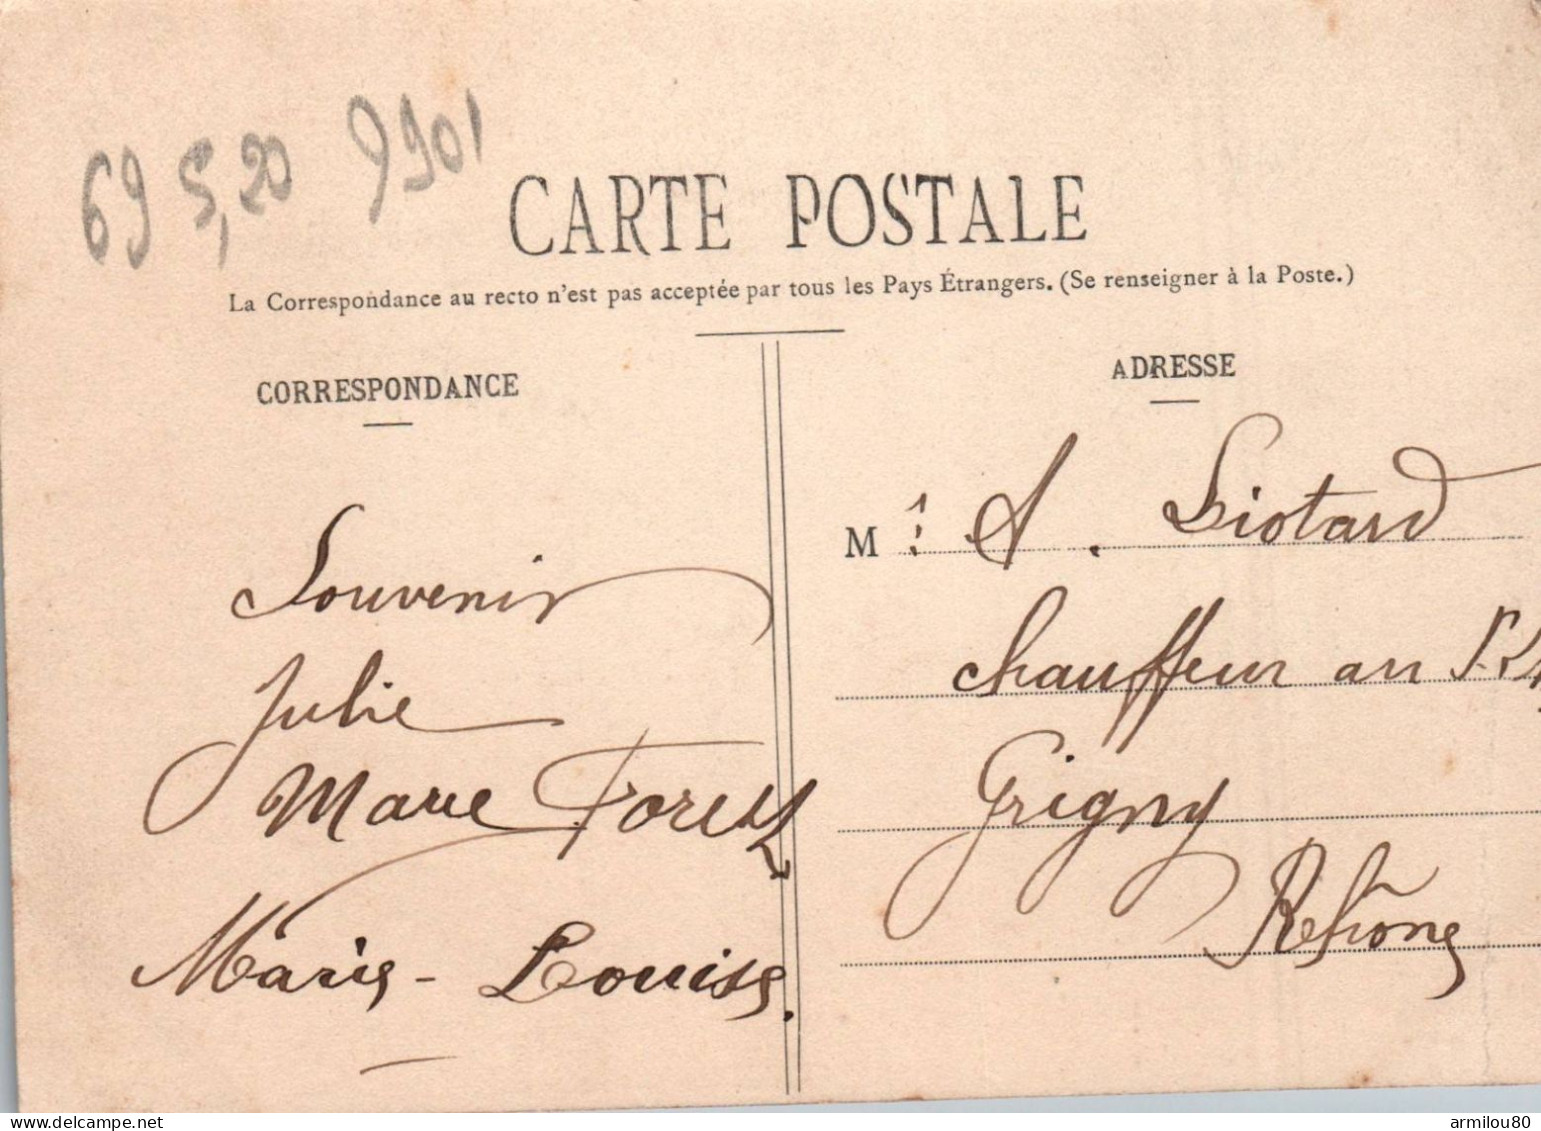 69 5,20 9901
CARTE POSTALE
La Correspondance au recto n'est pas acceptée par tous les Pays Étrangers. (Se renseigner à la Poste.)
CORRESPONDANCE
Souvenir
Julie
Marie Forest
Marie-Louise.
ADRESSE
M. A. Liotard
chauffeur au
Grigny
Rhône
armilou80
delcampe.net